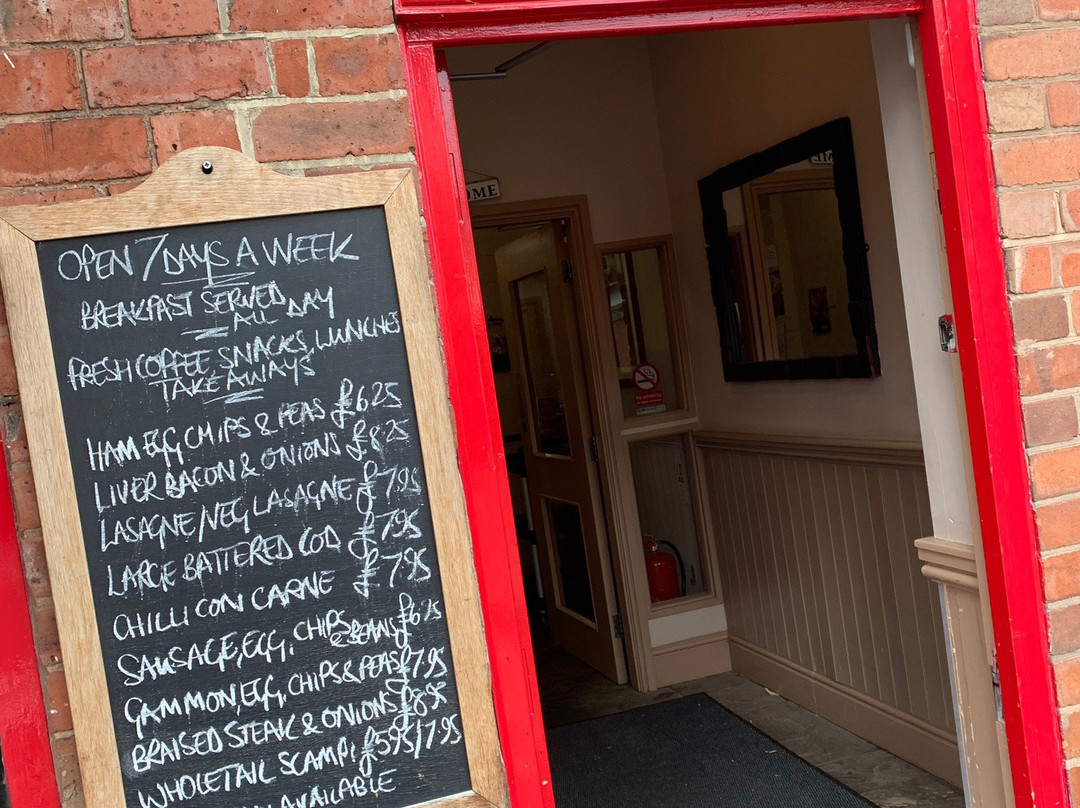 OPEN 7 DAYS A WEEK
BREAKFAST SERVED
ALL DAY
FRESH COFFEE, SNACKS, LUNCHES
TAKEAWAYS
HAM EGG CHIPS & PEAS £6.25
LIVER BACON & ONIONS £8.25
LASAGNE/VEG LASAGNE £7.95
LARGE BATTERED COD £7.95
CHILLI CON CARNE £7.95
SAUSAGE, EGG, CHIPS & BEANS £6.25
GAMMON, EGG, CHIPS & PEAS £7.95
BRAISED STEAK & ONIONS £8.95
WHOLETAIL SCAMPI £5.95/7.95
AVAILABLE
OME